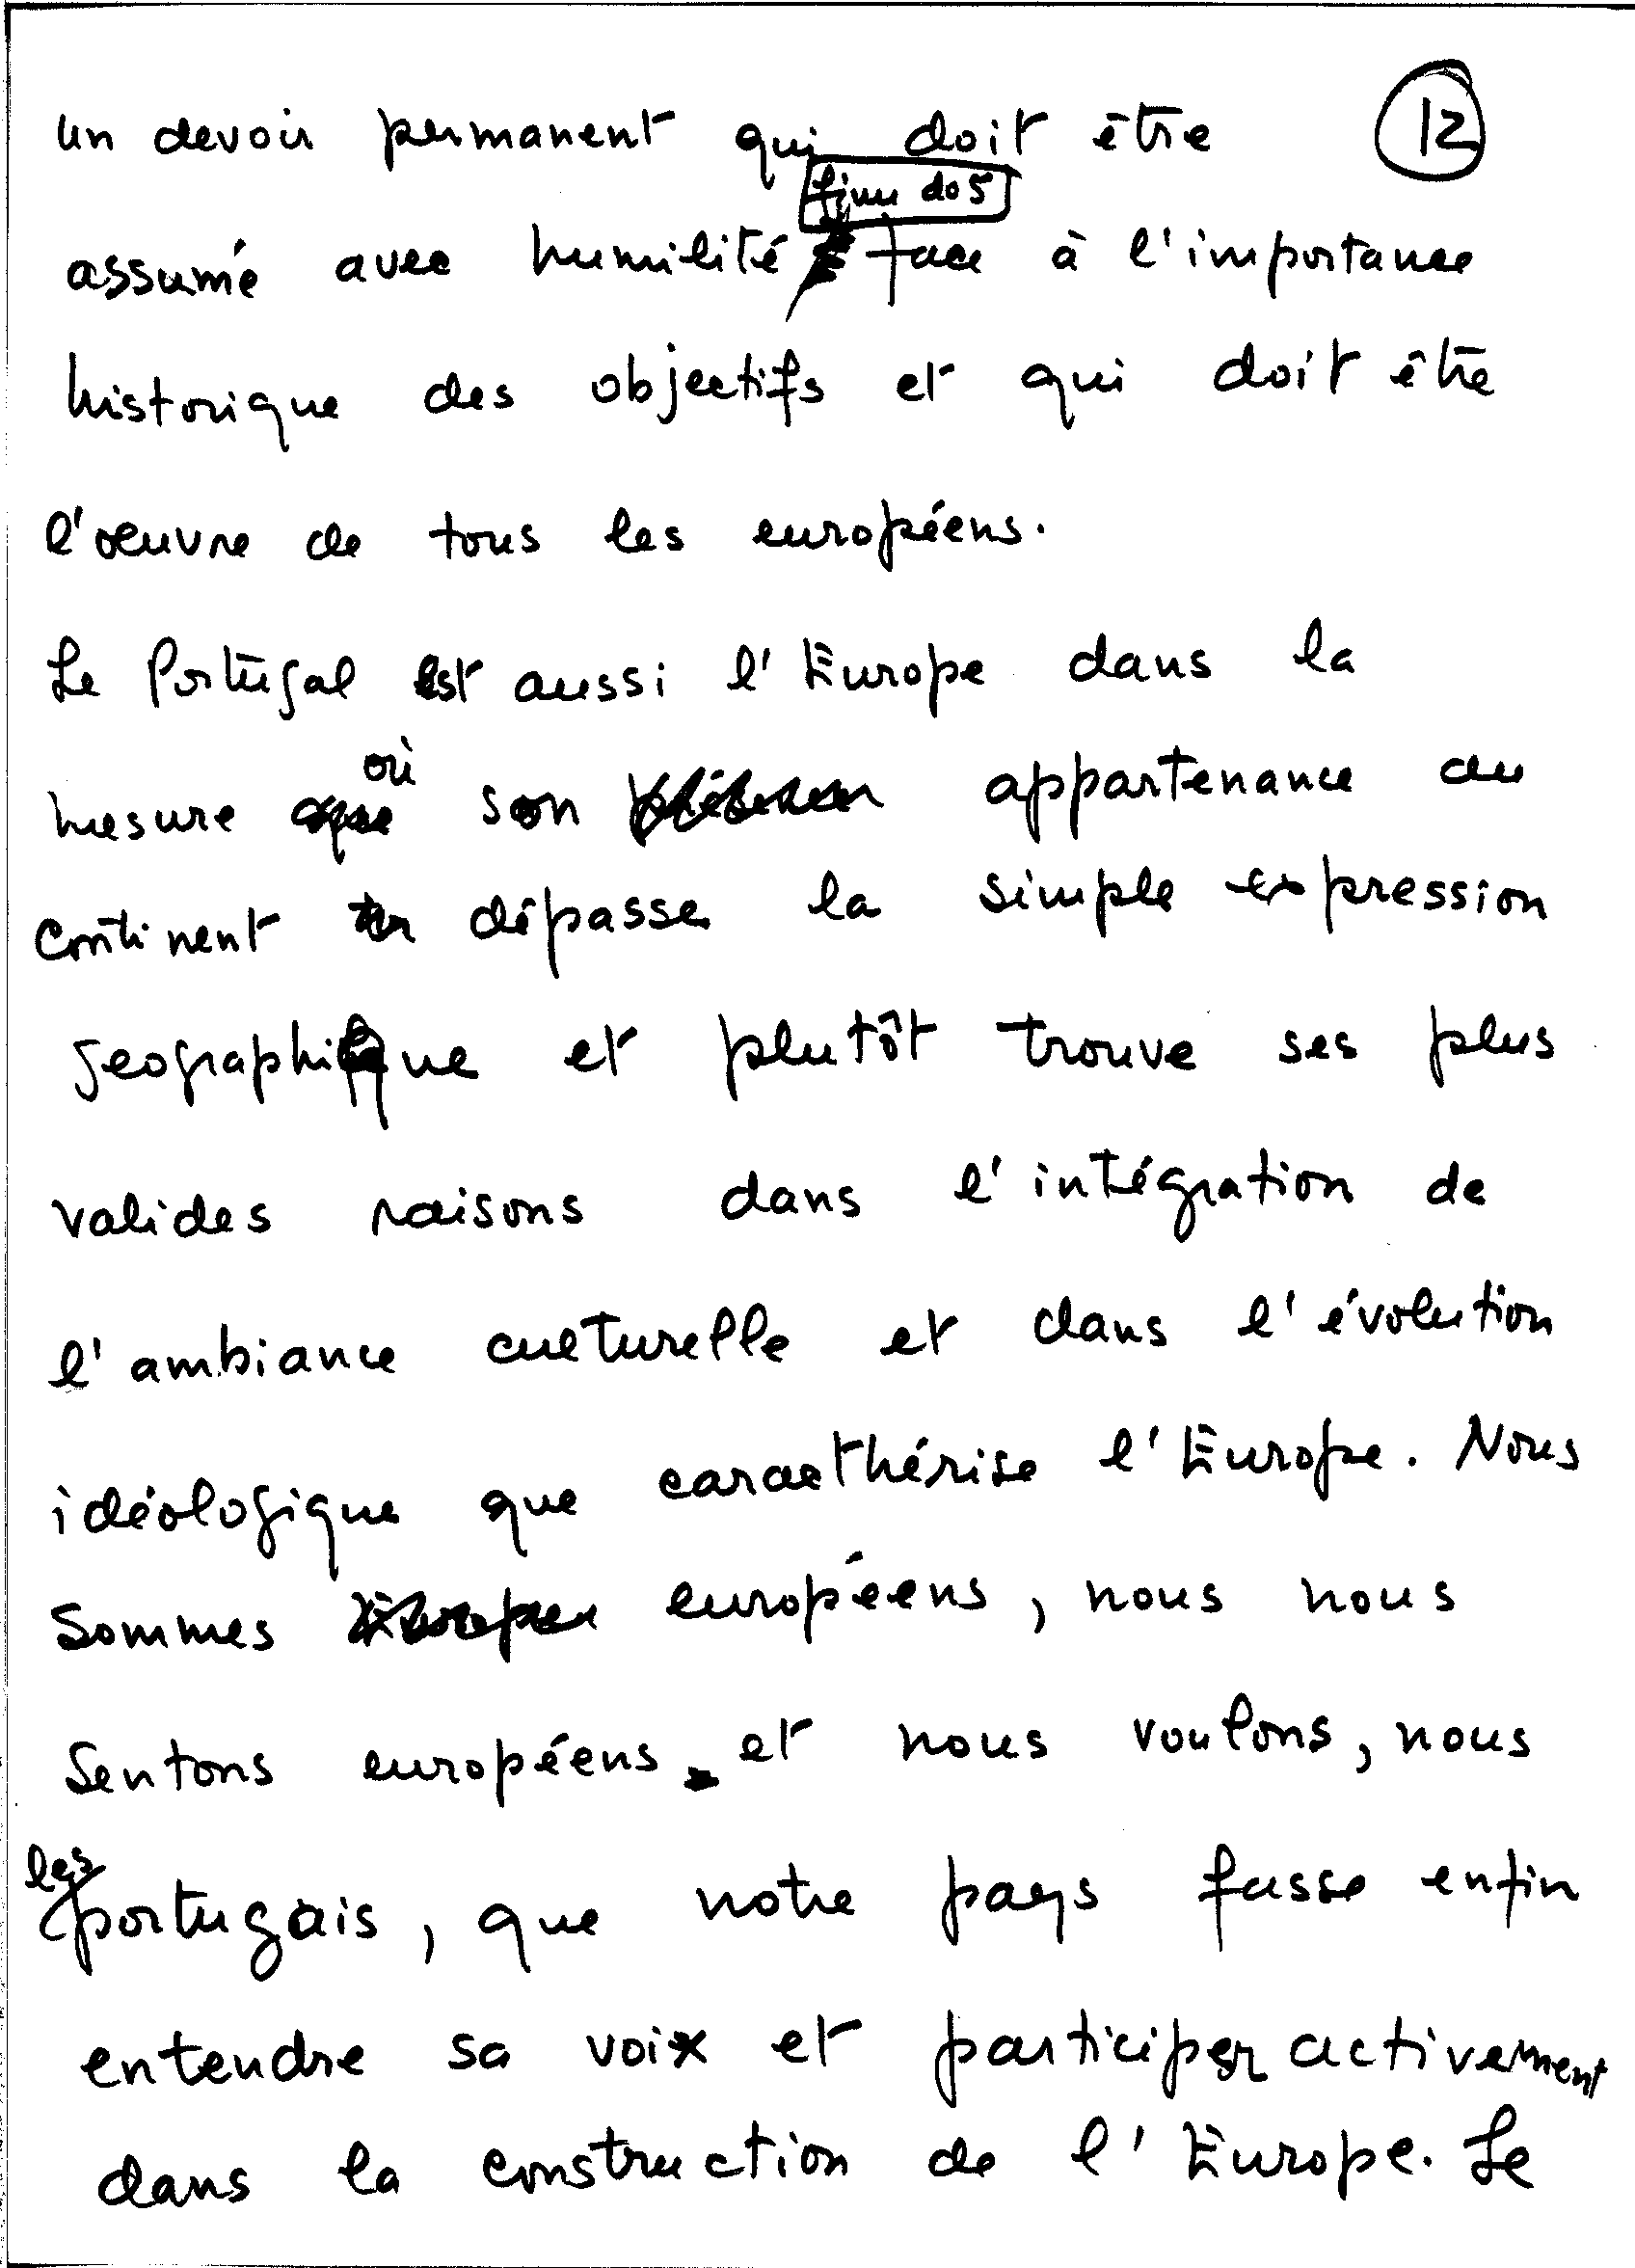 un devoir permanent qui doit être 12
assumé avec humilité face à l'importance
historique des objectifs et qui doit être
l'oeuvre de tous les européens.
Le Portugal est aussi l'Europe dans la
où
mesure son appartenance au
continent dépasse la simple expression
geographique et plutôt trouve ses plus
valides raisons dans l'intégration de
l'ambiance culturelle et dans l'évolution
idéologique que caracthérise l'Europe. Nous
sommes européens, nous nous
sentons européens et nous voulons, nous
les
portugais, que notre pays fasse enfin
entendre sa voix et participer activement
dans la construction de l'Europe. Le